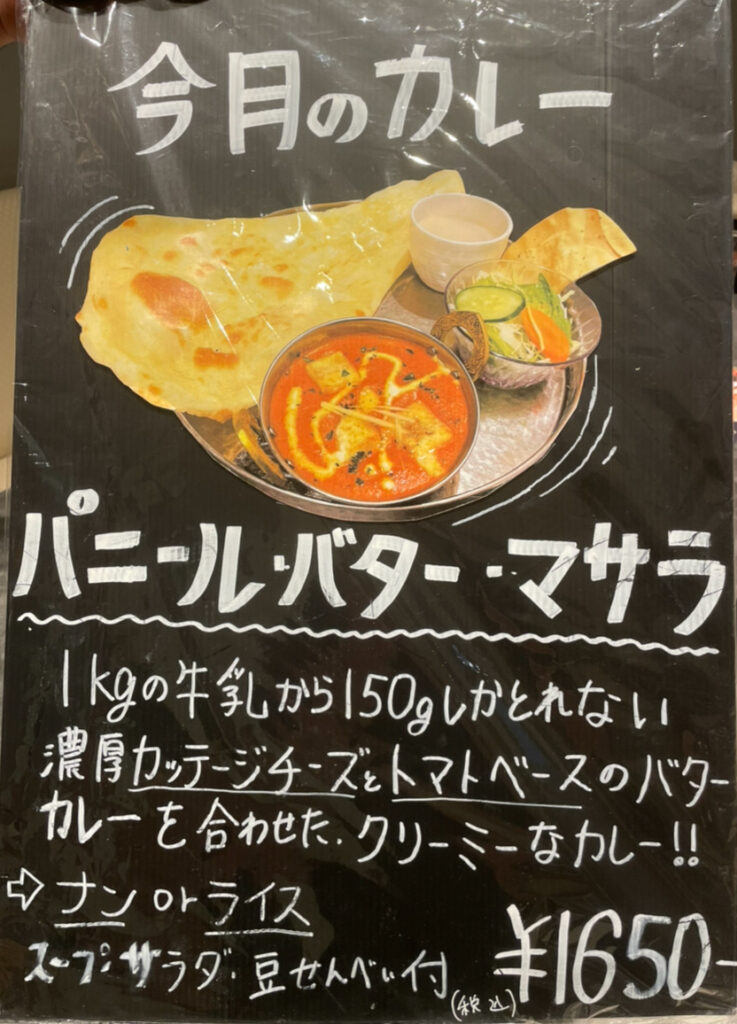 今月のカレー
パニール・バター・マサラ
1kgの牛乳から150gしかとれない
濃厚カッテージチーズとトマトベースのバター
カレーを合わせた、クリーミーなカレー!!
⇨ナン or ライス
スープ・サラダ・豆せんべい付
(税込)
¥1650-